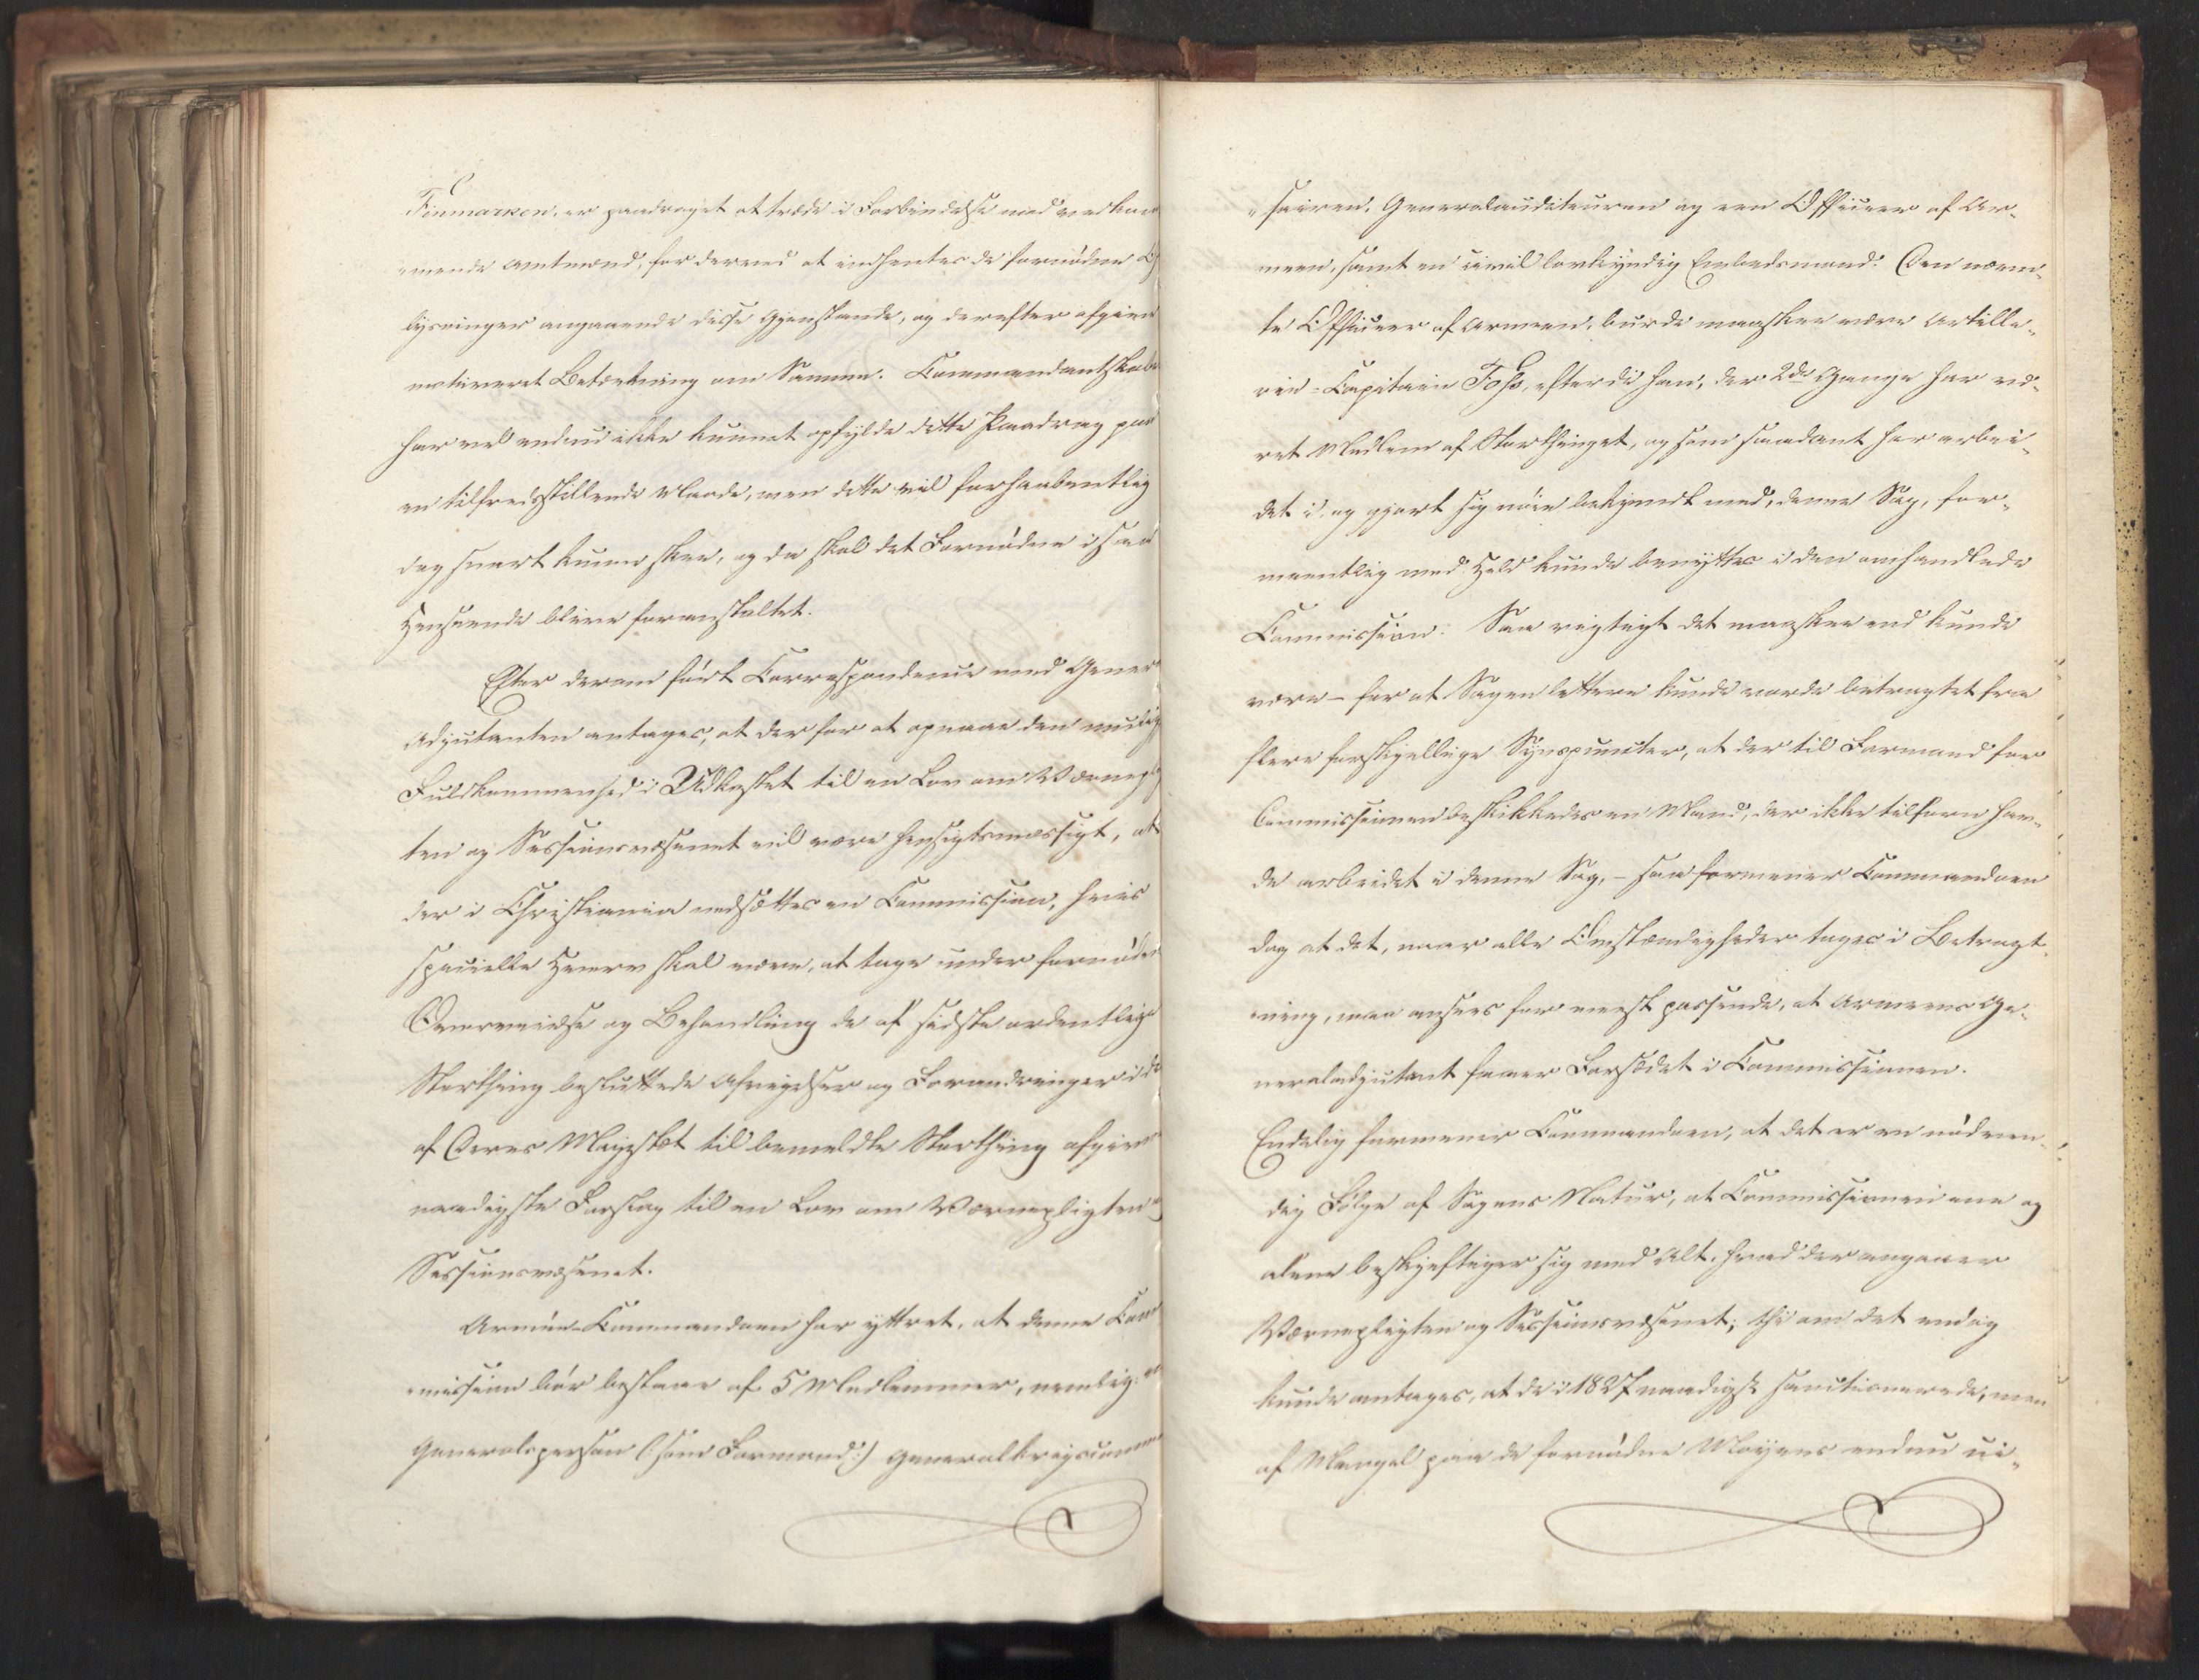 Finmarken, er paadraget at træde i Forbindelse med vedkom¬
mende Amtmænd, for derved at indhentes de fornødne Op
lysninger angaaende disse Gjenstande, og derefter afgive
motiveret Betænkning om Samme. Commandantskabet
har vel endnu ikke kunnet opfylde dette Paadrag paa
en tilfredsstillende Maade, men dette vil forhaabentlig
dog snart kunne skee, og da skal det Fornødne i saa
Henseende blive foranstaltet.
Efter derom ført Correspondence med General
Adjutanten antages, at der for at opnaae den mulige
Fuldkommenhed i Udkastet til en Lov om Værneplig
ten og Sessionsvæsenet vil være hensigtsmæssigt, at
der i Christiania nedsættes en Commission, hvis
specielle Hverv skal være, at tage under fornøden
Overveielse og Behandling de af sidste ordentlige
Storthing besluttede Afvigelser og Forandringer i de
af Deres Majestæt til bemeldte Storthing afgivne
naadigste Forslag til en Lov om Værnepligten og
Sessionsvæsenet.
Armée-Commandoen har yttret, at denne Com
mission bør bestaae af 5 Medlemmer, nemlig: en
Generalsperson (: som Formand :) Generalkrigscommis
sairen, Generalauditeuren og een Officeer af Ar¬
meen, samt en civil lovkyndig Embedsmand. Den nævn¬
te Officeer af Armeen, burde maaskee være Artille¬
rie-Capitain Foss, efterdi han, der 2de Gange har væ¬
ret Medlem af Storthinget, og som saadant har arbei¬
det i, og gjort sig nøie bekjendt med, denne Sag, for¬
meentlig med Held kunde benyttes i den omhandlede
Commission. Saa rigtigt det maaskee end kunde
være – for at Sagen lettere kunde vorde betragtet fra
flere forskjellige Synspuncter, at der til Formand for
Commissionen beskikkedes en Mand, der ikke tilforn hav¬
de arbeidet i denne Sag, – saa formener Commandoen
dog at det, naar alle Omstændigheder tages i Betragt¬
ning, maa ansees for meest passende, at Armeens Ge¬
neraladjutant faaer Forsædet i Commissionen.
Endelig formener Commandoen, at det er en nødven¬
dig Følge af Sagens Natur, at Commissionen ene og
alene beskjeftiger sig med Alt, hvad der angaaer
Værnepligten og Sessionsvæsenet; thi om det endog
kunde antages, at de i 1827 naadigst sanctionerede, men
af Mangel paa de fornødne Moyens endnu ui¬